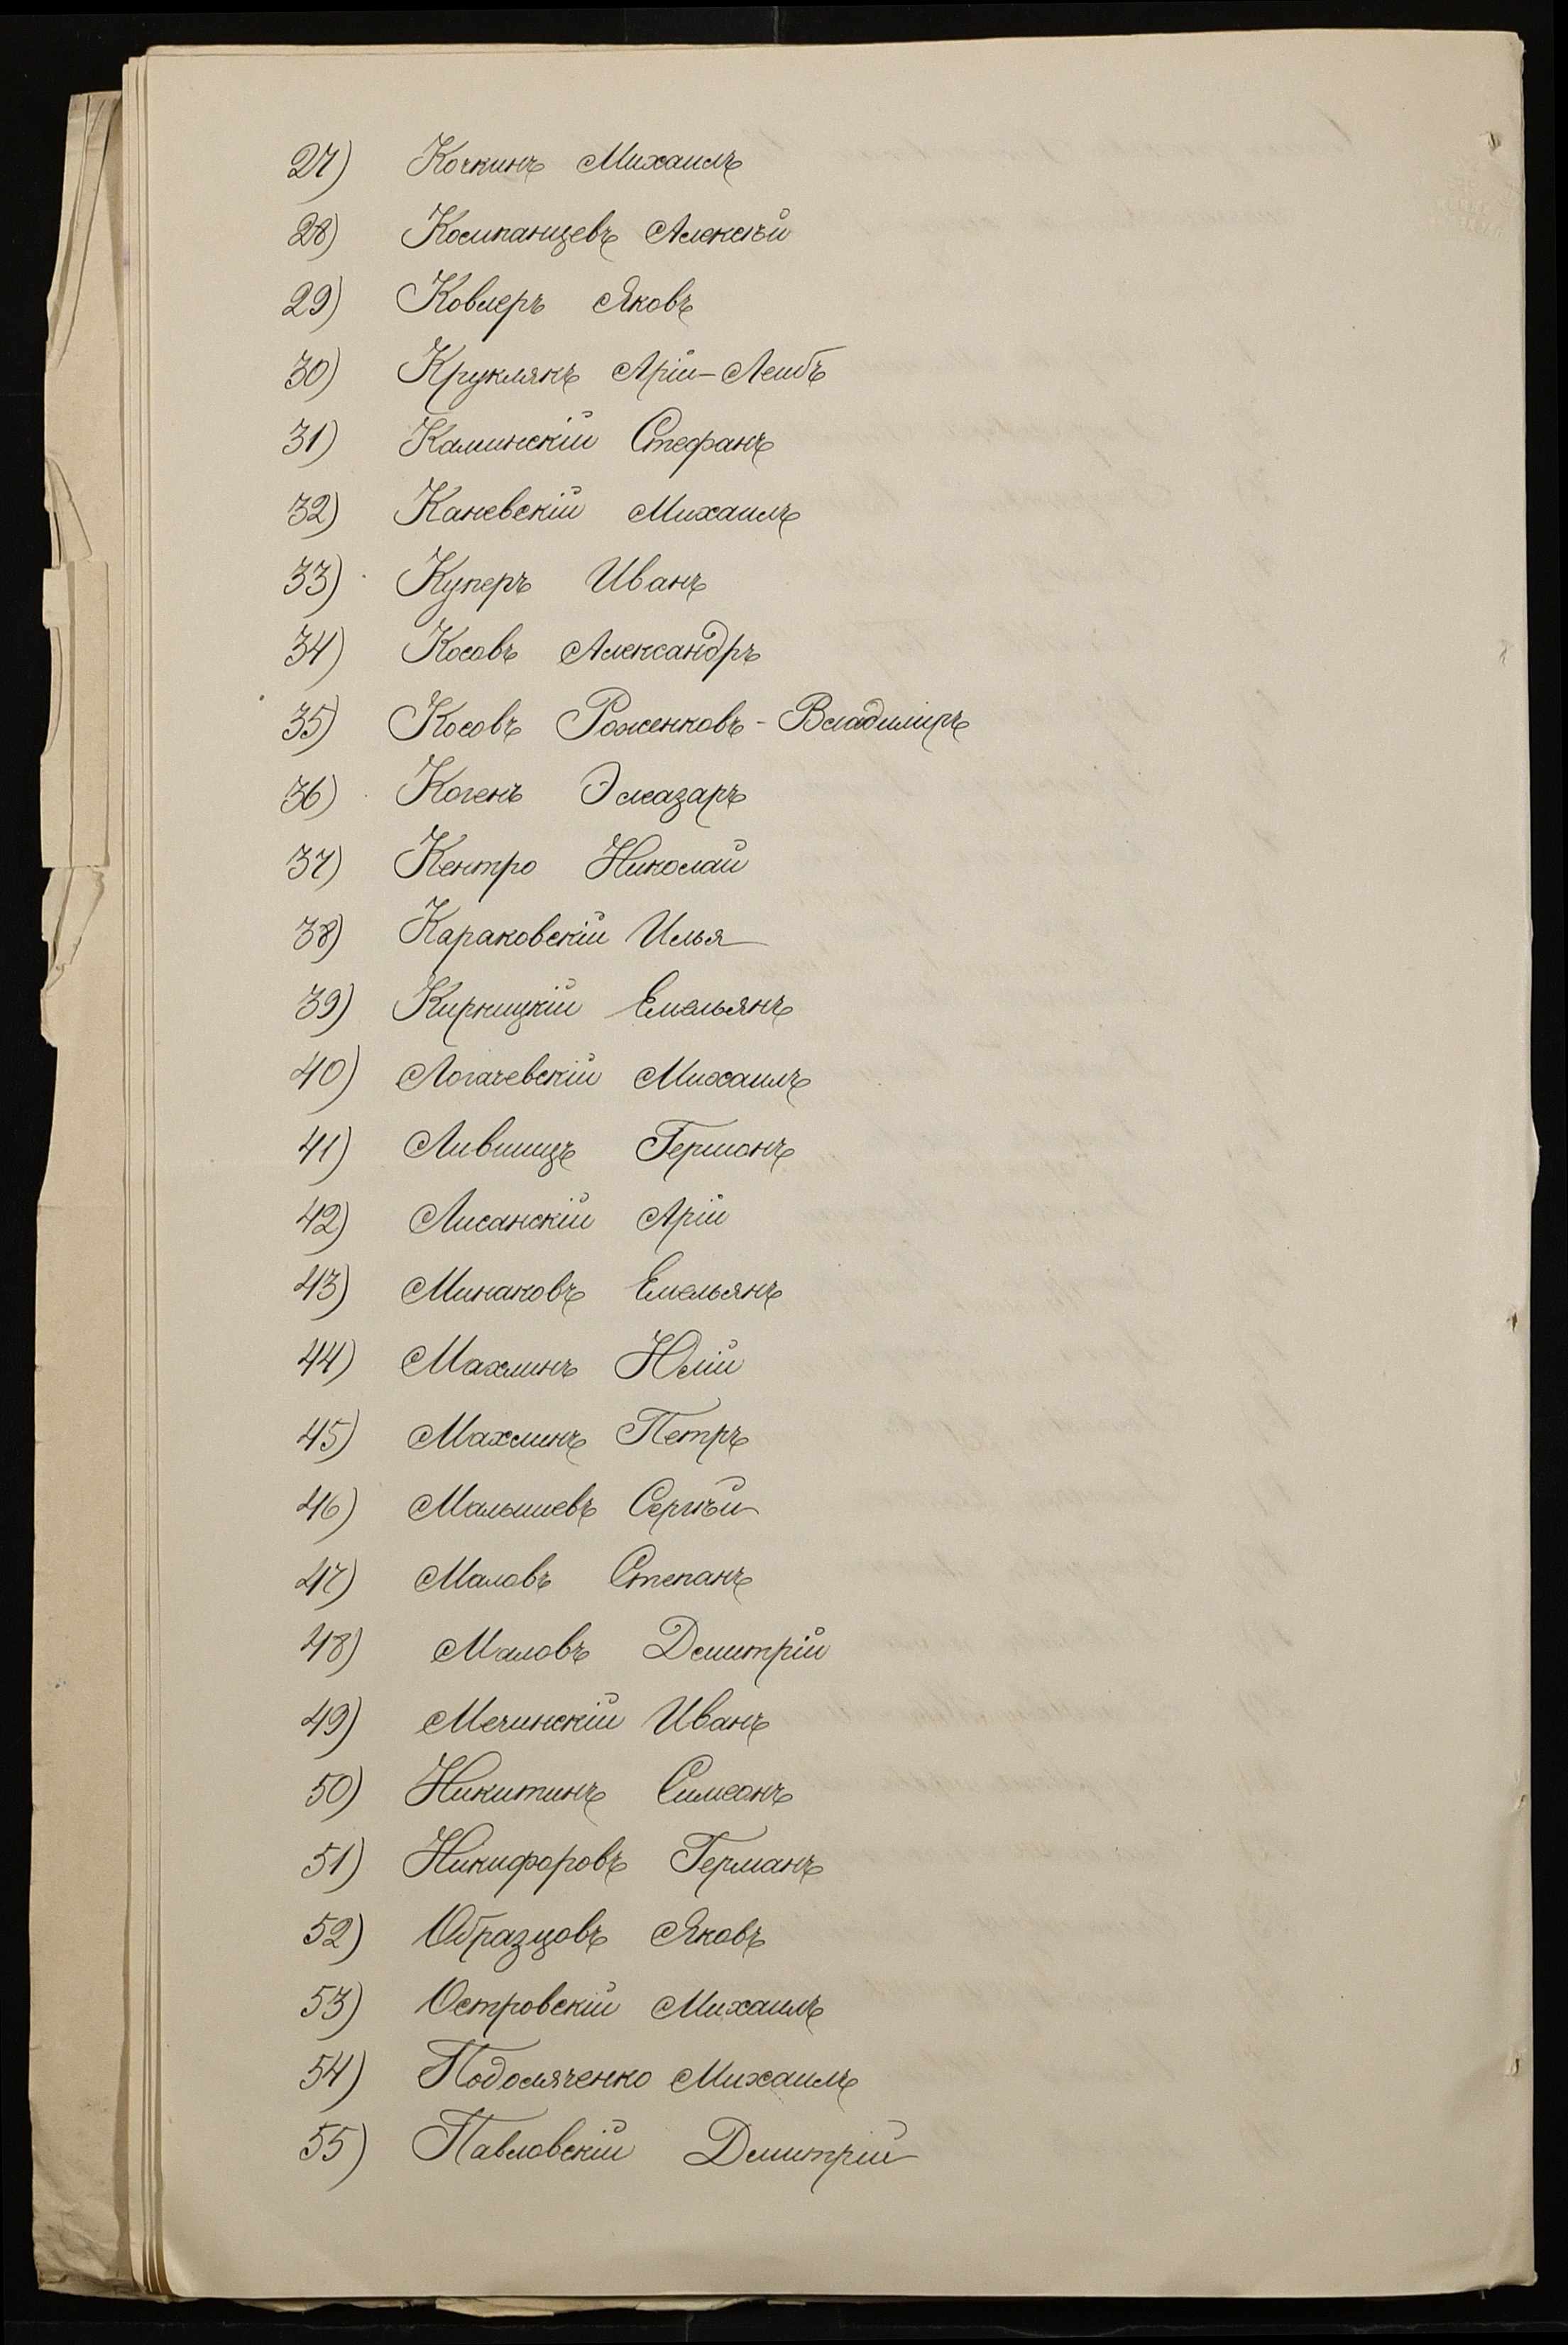 27) Кочкинъ Михаилъ
28) Компанцевъ Алексѣй
29) Ковлеръ Яковъ
30) Круклякъ Арій-Лейбъ
31) Калинскій Стефанъ
32) Каневскій Михаилъ
33) Куперъ Иванъ
34) Косовъ Александръ
35) Косовъ Роженковъ - Владиміръ
36) Когенъ Элеазаръ
37) Кентро Николай
38) Караковскій Илья
39) Кирницкій Емельянъ
40) Логачевскій Михаилъ
41) Лившицъ Гершонъ
42) Лисанскій Арій
43) Минаковъ Емельянъ
44) Махлинъ Юлій
45) Махлинъ Петръ
46) Малышевъ Сергѣй
47) Маловъ Степанъ
48) Маловъ Дмитрій
49) Мечинскій Иванъ
50) Никитинъ Симеонъ
51) Никифоровъ Германъ
52) Образцовъ Яковъ
53) Островскій Михаилъ
54) Подоляченко Михаилъ
55) Павловскій Дмитрій